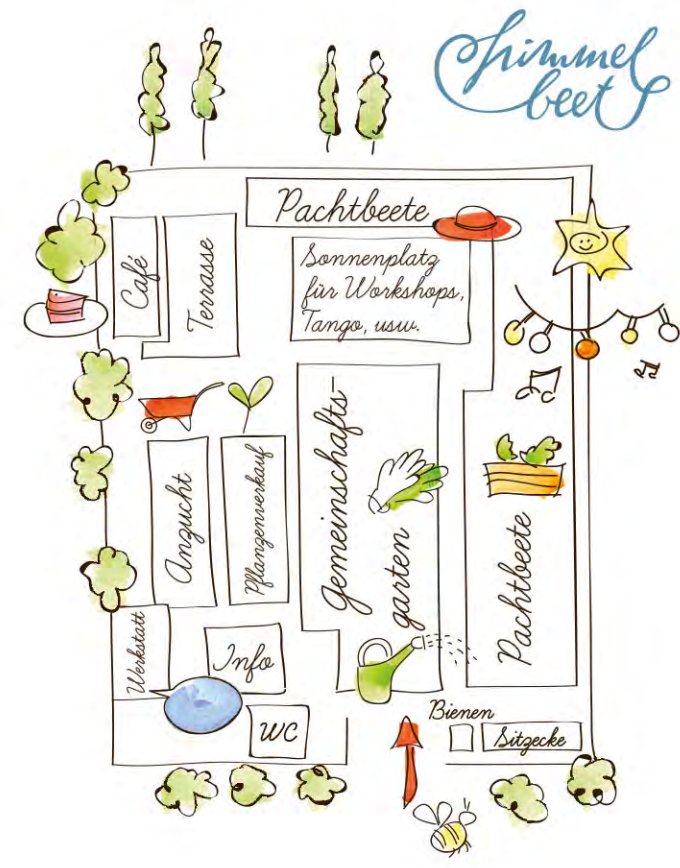 himmel
beet
Pachtbeete
Café
Terrasse
Sonnenplatz
für Workshops,
Tango, usw.
Anzucht
Pflanzenverkauf
Gemeinschafts-
garten
Pachtbeete
Werkstatt
Info
WC
Bienen
Sitzecke